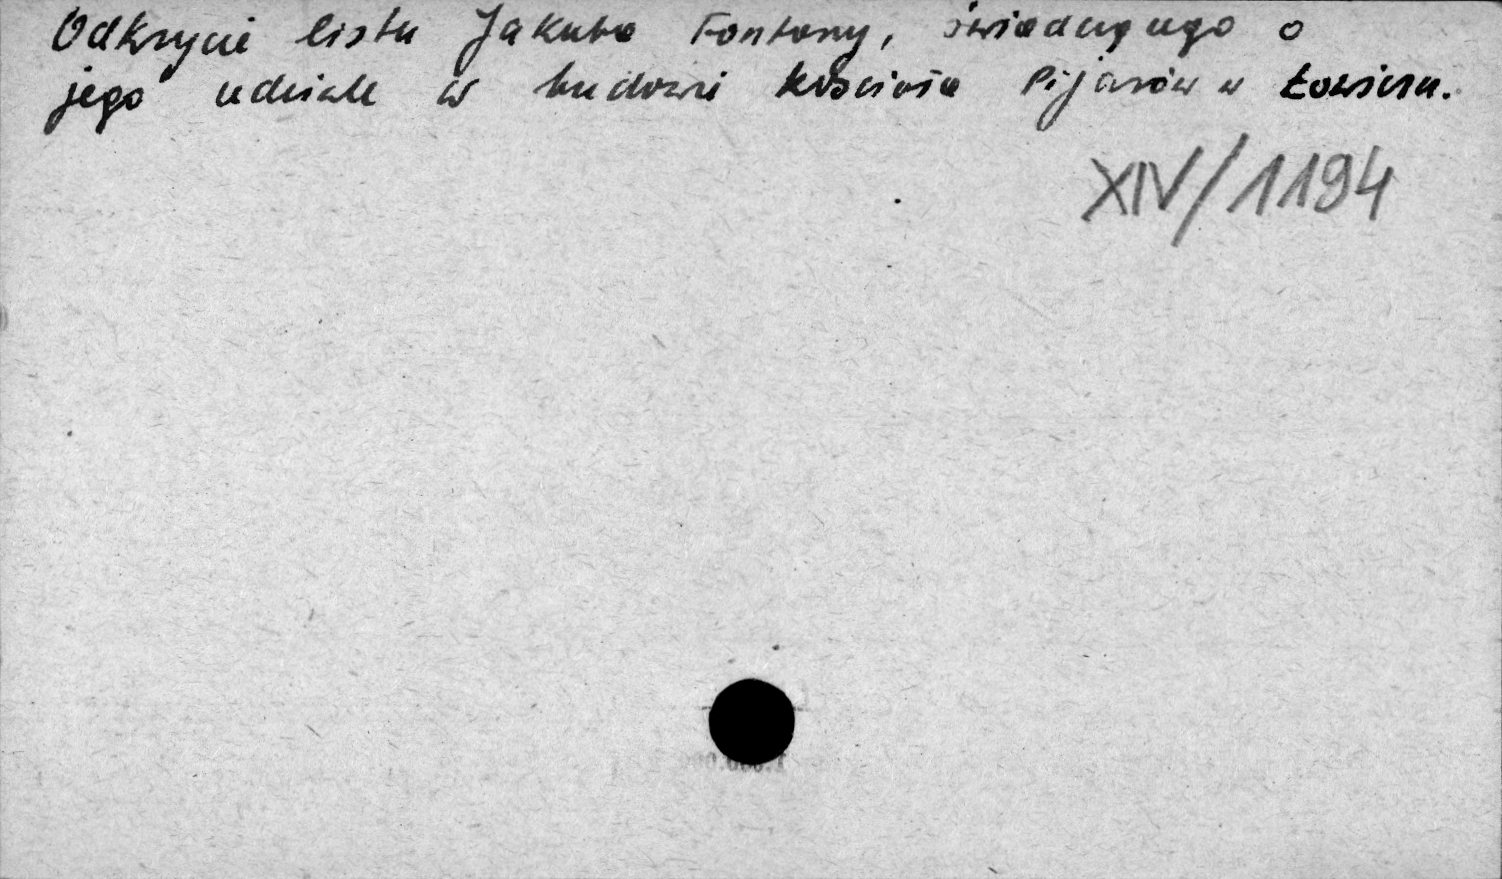 Odkrycie listu Jakuba Fontany, świadczącego o
jego udziale w budowie kościoła Pijarów w Łowiczu.
XIV/1194